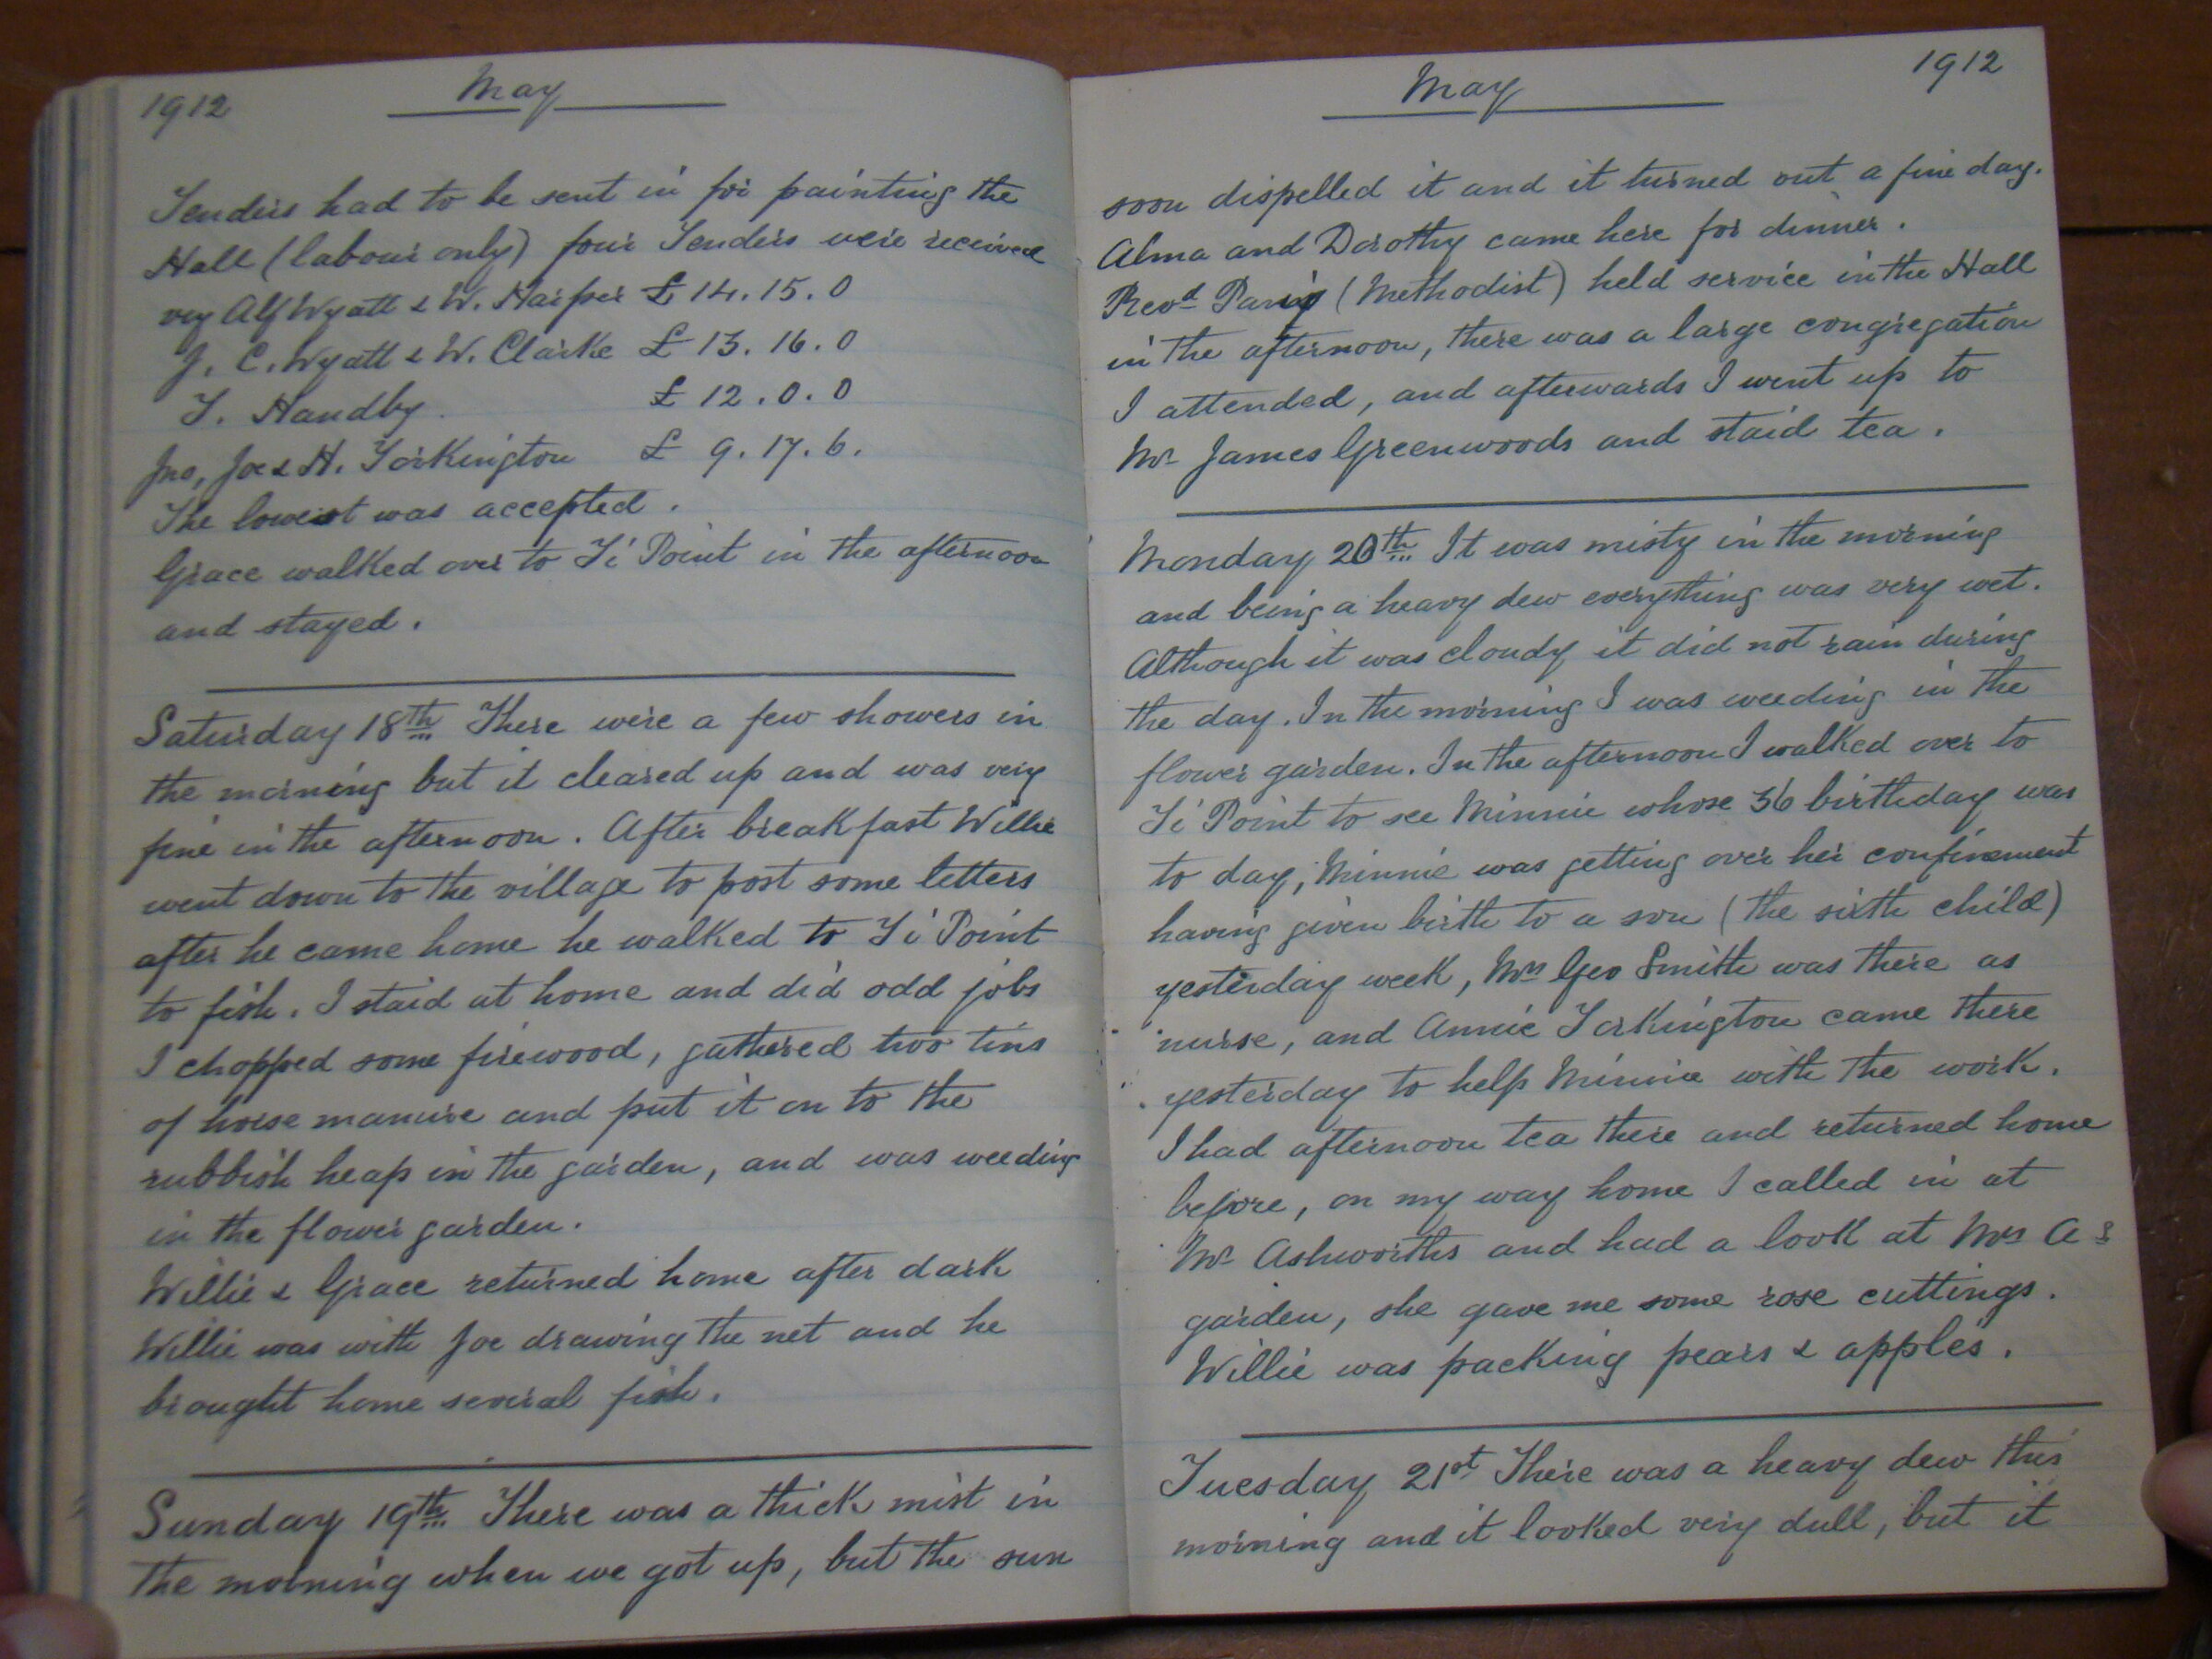 1912 May
Tenders had to be sent in for painting the
Hall (labour only) four Tenders were received
viz Alf Wyatt & W. Harper £ 14.15.0
J. C. Wyatt & W. Clarke £ 13.16.0
T. Handby. £ 12.0.0
Jno, Joe & H. Torkington £ 9.17.6.
The lowest was accepted.
Grace walked over to Ti Point in the afternoon
and stayed.
Saturday 18th There were a few showers in
the morning but it cleared up and was very
fine in the afternoon. After breakfast Willie
went down to the village to post some letters
after he came home he walked to Ti Point
to fish. I staid at home and did odd jobs
I chopped some firewood, gathered two tins
of horse manure and put it on to the
rubbish heap in the garden, and was weeding
in the flower garden.
Willie & Grace returned home after dark
Willie was with Joe drawing the net and he
brought home several fish.
Sunday 19th There was a thick mist in
the morning when we got up, but the sun
May 1912
soon dispelled it and it turned out a fine day.
Alma and Dorothy came here for dinner.
Revd (Methodist) held service in the Hall
in the afternoon, there was a large congregation
I attended, and afterwards I went up to
Mr James Greenwoods and staid tea.
Monday 20th It was misty in the morning
and being a heavy dew everything was very wet.
Although it was cloudy it did not rain during
the day. In the morning I was weeding in the
flower garden. In the afternoon I walked over to
Ti Point to see Minnie whose 36 birthday was
to day, Minnie was getting over her confinement
having given birth to a son (the sixth child)
yesterday week, Mrs Geo Smith was there as
nurse, and Annie Torkington came there
yesterday to help Minnie with the work.
I had afternoon tea there and returned home
before, on my way home I called in at
Mr Ashworths and had a look at Mrs A s
garden, she gave me some rose cuttings.
Willie was packing pears & apples.
Tuesday 21st There was a heavy dew this
morning and it looked very dull, but it